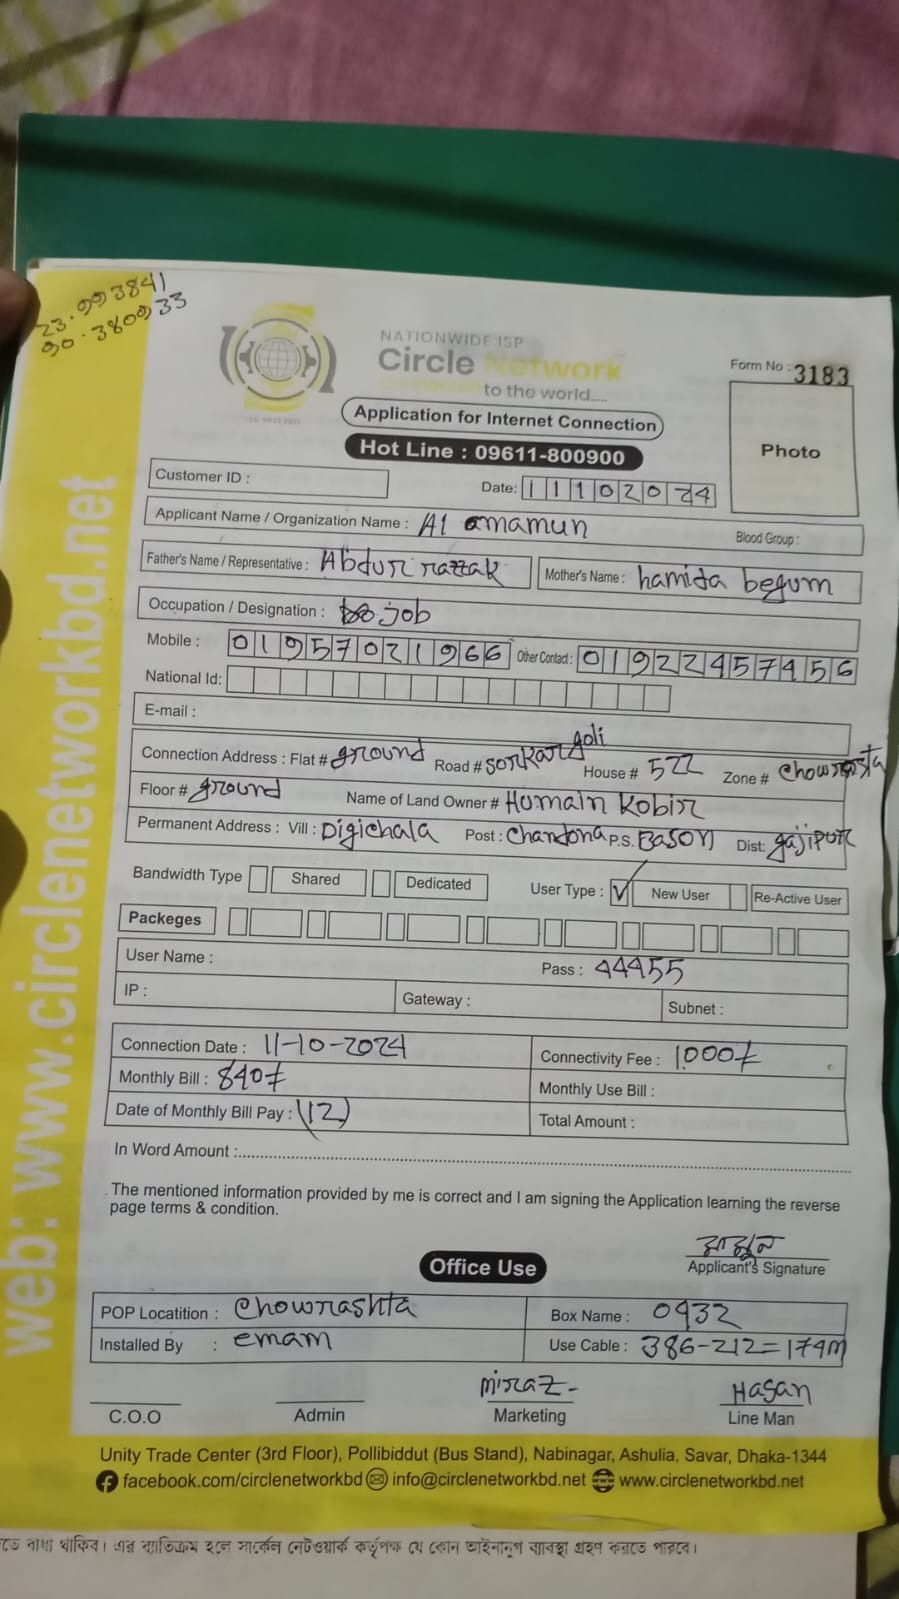 23.993841
90.380933
NATIONWIDE ISP
Circle Network
Connected to the world.....
Form No : 3183
Application for Internet Connection
Photo
Hot Line : 09611-800900
Customer ID :
Date: 11102024
Applicant Name / Organization Name : Al amamun Blood Group :
Father's Name / Representative : Abdur razzak Mother's Name : hamida begum
Occupation / Designation : job
Mobile : 01957021966 Other Contact : 01922457456
National Id:
E-mail :
Connection Address : Flat # ground Road # sorkar goli House # 522 Zone # chowrasta
Floor # ground Name of Land Owner # Humain kobir
Permanent Address : Vill : Digichala Post : Chandona P.S. Bason Dist: gajipur
Bandwidth Type Shared Dedicated User Type : ✓ New User Re-Active User
Packeges
User Name : Pass : 44455
IP : Gateway : Subnet :
Connection Date : 11-10-2024 Connectivity Fee : 1000/-
Monthly Bill : 840/- Monthly Use Bill :
Date of Monthly Bill Pay : (12) Total Amount :
In Word Amount :
The mentioned information provided by me is correct and I am signing the Application learning the reverse
page terms & condition.
মামুন
Applicant's Signature
Office Use
POP Locatition : Chowrashta Box Name : 0932
Installed By : emam Use Cable : 386-212=174m
Miraz Hasan
C.O.O Admin Marketing Line Man
Unity Trade Center (3rd Floor), Pollibiddut (Bus Stand), Nabinagar, Ashulia, Savar, Dhaka-1344
facebook.com/circlenetworkbd info@circlenetworkbd.net www.circlenetworkbd.net
web: www.circlenetworkbd.net
তে বাধ্য থাকিব। এর ব্যতিক্রম হলে সার্কেল নেটওয়ার্ক কর্তৃপক্ষ যে কোন আইনানুগ ব্যবস্থা গ্রহণ করতে পারবে।